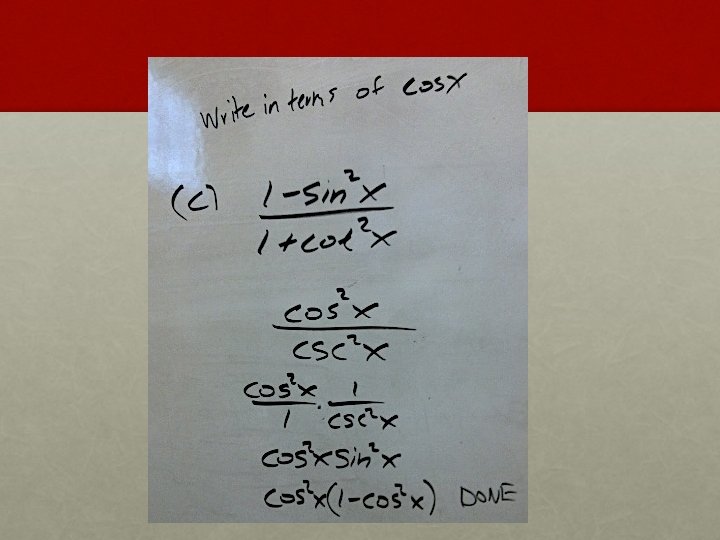 Write in terms of cosx
(c) 1-sin²x
1+cot²x
cos²x
csc²x
cos²x/1 · 1/csc²x
cos²x sin²x
cos²x(1-cos²x) DONE